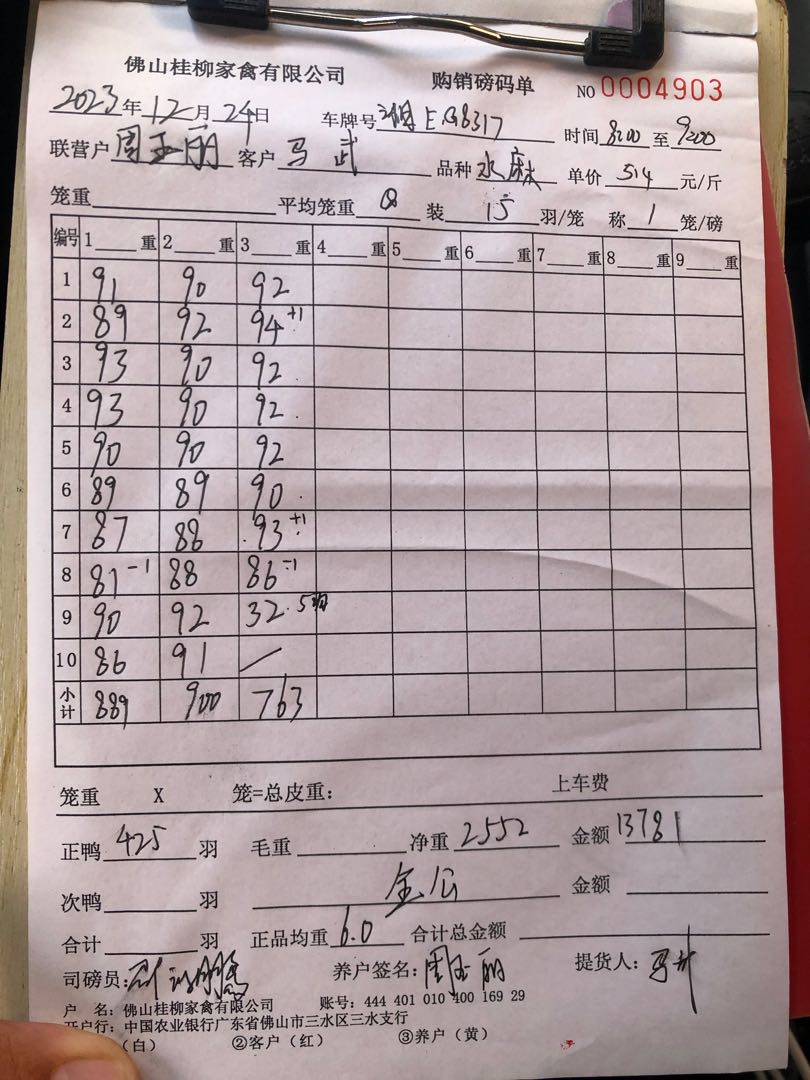 佛山桂柳家禽有限公司 购销磅码单 NO 0004903
2023年12月24日 车牌号 湘E.G8317 时间 8:00 至 9:00
联营户 周玉丽 客户 马武 品种 水麻 单价 5.4 元/斤
笼重 平均笼重 0 装 15 羽/笼 称 1 笼/磅
编号 1 重 2 重 3 重 4 重 5 重 6 重 7 重 8 重 9 重
1 91 90 92
2 89 92 94 +1
3 93 90 92
4 93 90 92
5 90 90 92
6 89 89 90
7 87 88 93 +1
8 81 -1 88 86 -1
9 90 92 32 5羽
10 86 91 /
小计 889 900 763
笼重 X 笼=总皮重: 上车费
正鸭 425 羽 毛重 净重 2552 金额 13781
次鸭 羽 全公 金额
合计 羽 正品均重 6.0 合计总金额
司磅员: 养户签名: 周玉丽 提货人:
户 名: 佛山桂柳家禽有限公司 账号: 444 401 010 400 169 29
开户行: 中国农业银行广东省佛山市三水区三水支行
(白) ②客户(红) ③养户(黄)